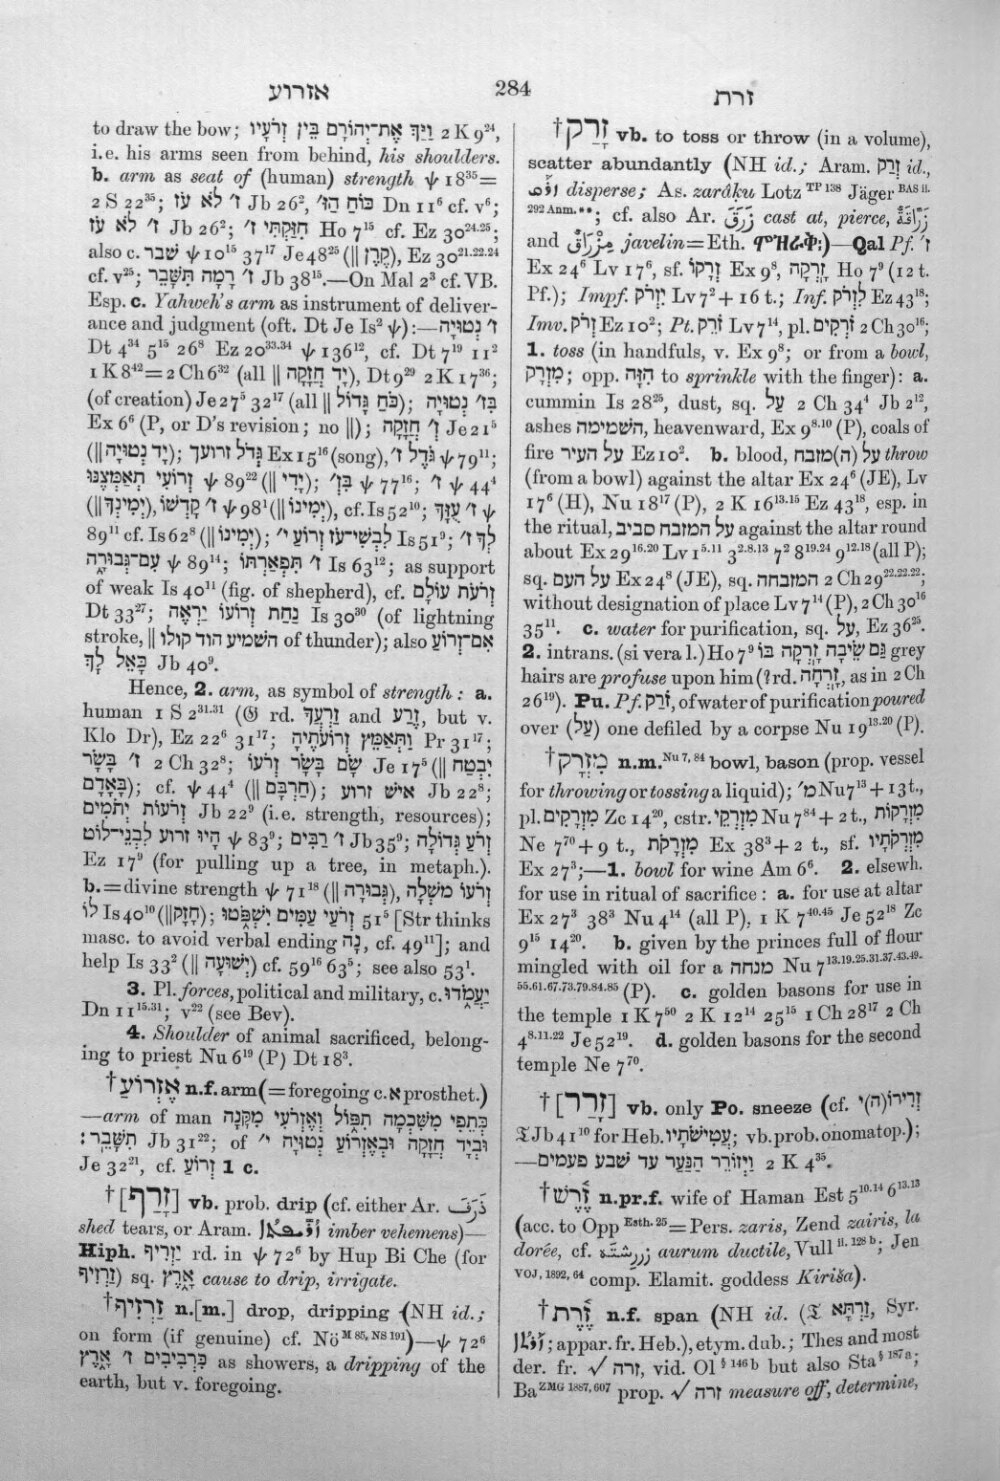 אזרוע
284
זרת
to draw the bow; וַיַּךְ אֶת־יְהוֹרָם בֵּין זְרֹעָיו 2 K 9²⁴,
i.e. his arms seen from behind, his shoulders.
b. arm as seat of (human) strength ψ 18³⁵=
2 S 22³⁵; ז׳ לֹא עֹז Jb 26², כּוֹחַ הַזּ׳ Dn 11⁶ cf. v⁶;
ז׳ לֹא עֹז Jb 26²; חִזַּקְתִּי ז׳ Ho 7¹⁵ cf. Ez 30²⁴·²⁵;
also c. שבר ψ 10¹⁵ 37¹⁷ Je 48²⁵ (|| קֶרֶן), Ez 30²¹·²²·²⁴
cf. v²⁵; ז׳ רָמָה תִּשָּׁבֵר Jb 38¹⁵.—On Mal 2³ cf. VB.
Esp. c. Yahweh's arm as instrument of deliver-
ance and judgment (oft. Dt Je Is² ψ):—ז׳ נְטוּיָה
Dt 4³⁴ 5¹⁵ 26⁸ Ez 20³³·³⁴ ψ 136¹², cf. Dt 7¹⁹ 11²
1 K 8⁴²=2 Ch 6³² (all || יָד חֲזָקָה), Dt 9²⁹ 2 K 17³⁶;
(of creation) Je 27⁵ 32¹⁷ (all || כֹּחַ גָּדוֹל); בִּז׳ נְטוּיָה
Ex 6⁶ (P, or D's revision; no ||); ז׳ חֲזָקָה Je 21⁵
(|| יָד נְטוּיָה); גְּדֹל זרועך Ex 15¹⁶ (song), גֹּדֶל ז׳ ψ 79¹¹;
ז׳ ψ 44⁴ בִּז׳ ψ 77¹⁶; (|| יָדִי) ψ 89²² זְרוֹעִי תְאַמְּצֶנּוּ
(|| יְמִינְךָ), ז׳ קָדְשׁוֹ ψ 98¹ (|| יְמִינוֹ), cf. Is 52¹⁰; ז׳ עֻזֶּךָ ψ
89¹¹ cf. Is 62⁸ (|| יְמִינוֹ); לִבְשִׁי־עֹז זְרוֹעַ י׳ Is 51⁹; לְךָ ז׳
עִם־גְּבוּרָה ψ 89¹⁴; ז׳ תִּפְאַרְתּוֹ Is 63¹²; as support
of weak Is 40¹¹ (fig. of shepherd), cf. זְרֹעֹת עוֹלָם
Dt 33²⁷; נַחַת זְרוֹעוֹ יַרְאֶה Is 30³⁰ (of lightning
stroke, || השמיע הוד קולו of thunder); also אִם־זְרוֹעַ
כָּאֵל לָךְ Jb 40⁹.
Hence, 2. arm, as symbol of strength: a.
human 1 S 2³¹·³¹ (𝔊 rd. זַרְעֲךָ and זֶרַע, but v.
Klo Dr), Ez 22⁶ 31¹⁷; וַתְּאַמֵּץ זְרוֹעֹתֶיהָ Pr 31¹⁷;
ז׳ בָּשָׂר 2 Ch 32⁸; שָׂם בָּשָׂר זְרֹעוֹ Je 17⁵ (|| יִבְטַח
בָּאָדָם); cf. ψ 44⁴ (|| חַרְבָּם); איש זרוע Jb 22⁸;
זְרֹעוֹת יְתֹמִים Jb 22⁹ (i.e. strength, resources);
הָיוּ זרוע לִבְנֵי־לוֹט ψ 83⁹; ז׳ רַבִּים Jb 35⁹; זְרֹעַ גְּדוֹלָה
Ez 17⁹ (for pulling up a tree, in metaph.).
b.=divine strength ψ 71¹⁸ (|| גְּבוּרָה), זְרֹעוֹ מֹשְׁלָה
לוֹ Is 40¹⁰ (|| חָזָק); זְרֹעַי עַמִּים יִשְׁפֹּטוּ 51⁵ [Str thinks
masc. to avoid verbal ending נָה, cf. 49¹¹]; and
help Is 33² (|| יְשׁוּעָה) cf. 59¹⁶ 63⁵; see also 53¹.
3. Pl. forces, political and military, c. יַעֲמֹדוּ
Dn 11¹⁵·³¹; v²² (see Bev).
4. Shoulder of animal sacrificed, belong-
ing to priest Nu 6¹⁹ (P) Dt 18³.
†אֶזְרוֹעַ n.f. arm (=foregoing c. א prosthet.)
—arm of man כְּתֵפִי מִשִּׁכְמָה תִפּוֹל וְאֶזְרֹעִי מִקָּנָה
תִּשָּׁבֵר: Jb 31²²; of י׳ וּבְיָד חֲזָקָה וּבְאֶזְרוֹעַ נְטוּיָה
Je 32²¹, cf. זְרוֹעַ 1 c.
†[זָרַף] vb. prob. drip (cf. either Ar. ذَرَفَ
shed tears, or Aram. imber vehemens)—
Hiph. יַזְרִיף rd. in ψ 72⁶ by Hup Bi Che (for
זַרְזִיף) sq. אָרֶץ cause to drip, irrigate.
†זַרְזִיף n.[m.] drop, dripping (NH id.;
on form (if genuine) cf. Nöᴹ ⁸⁵, ᴺˢ ¹⁹¹)—ψ 72⁶
כִּרְבִיבִים ז׳ אָרֶץ as showers, a dripping of the
earth, but v. foregoing.
†זָרַק vb. to toss or throw (in a volume),
scatter abundantly (NH id.; Aram. זְרַק id.,
disperse; As. zaráḳu Lotz ᵀᴾ ¹³⁸ Jäger ᴮᴬˢ ⁱⁱ·
²⁹² ᴬⁿᵐ·**; cf. also Ar. زَرَقَ cast at, pierce, زَرَّاقَةٌ
and مِزْرَاقٌ javelin=Eth. )—Qal Pf. ז׳
Ex 24⁶ Lv 17⁶, sf. זְרָקוֹ Ex 9⁸, זָרְקָה Ho 7⁹ (12 t.
Pf.); Impf. יִזְרֹק Lv 7²+16 t.; Inf. לִזְרֹק Ez 43¹⁸;
Imv. זְרֹק Ez 10²; Pt. זֹרֵק Lv 7¹⁴, pl. זֹרְקִים 2 Ch 30¹⁶;
1. toss (in handfuls, v. Ex 9⁸; or from a bowl,
מִזְרָק; opp. הִזָּה to sprinkle with the finger): a.
cummin Is 28²⁵, dust, sq. עַל 2 Ch 34⁴ Jb 2¹²,
ashes השמימה, heavenward, Ex 9⁸·¹⁰ (P), coals of
fire על העיר Ez 10². b. blood, על (ה)מזבח throw
(from a bowl) against the altar Ex 24⁶ (JE), Lv
17⁶ (H), Nu 18¹⁷ (P), 2 K 16¹³·¹⁵ Ez 43¹⁸, esp. in
the ritual, על המזבח סביב against the altar round
about Ex 29¹⁶·²⁰ Lv 1⁵·¹¹ 3²·⁸·¹³ 7² 8¹⁹·²⁴ 9¹²·¹⁸ (all P);
sq. על העם Ex 24⁸ (JE), sq. המזבחה 2 Ch 29²²·²²·²²;
without designation of place Lv 7¹⁴ (P), 2 Ch 30¹⁶
35¹¹. c. water for purification, sq. עַל, Ez 36²⁵.
2. intrans. (si vera l.) Ho 7⁹ גַּם שֵׂיבָה זָרְקָה בּוֹ grey
hairs are profuse upon him (? rd. זָרְחָה, as in 2 Ch
26¹⁹). Pu. Pf. זֹרַק, of water of purification poured
over (עַל) one defiled by a corpse Nu 19¹³·²⁰ (P).
†מִזְרָק n.m. ᴺᵘ ⁷, ⁸⁴ bowl, bason (prop. vessel
for throwing or tossing a liquid); מ׳ Nu 7¹³+13 t.,
pl. מִזְרָקִים Zc 14²⁰, cstr. מִזְרְקֵי Nu 7⁸⁴+2 t., מִזְרָקוֹת
Ne 7⁷⁰+9 t., מִזְרָקֹת Ex 38³+2 t., sf. מִזְרְקֹתָיו
Ex 27³;—1. bowl for wine Am 6⁶. 2. elsewh.
for use in ritual of sacrifice: a. for use at altar
Ex 27³ 38³ Nu 4¹⁴ (all P), 1 K 7⁴⁰·⁴⁵ Je 52¹⁸ Zc
9¹⁵ 14²⁰. b. given by the princes full of flour
mingled with oil for a מנחה Nu 7¹³·¹⁹·²⁵·³¹·³⁷·⁴³·⁴⁹·
⁵⁵·⁶¹·⁶⁷·⁷³·⁷⁹·⁸⁴·⁸⁵ (P). c. golden basons for use in
the temple 1 K 7⁵⁰ 2 K 12¹⁴ 25¹⁵ 1 Ch 28¹⁷ 2 Ch
4⁸·¹¹·²² Je 52¹⁹. d. golden basons for the second
temple Ne 7⁷⁰.
†[זָרַר] vb. only Po. sneeze (cf. זְרִירוֹ(ה)י
𝔗 Jb 41¹⁰ for Heb. עֲטִישֹׁתָיו; vb. prob. onomatop.);
—וַיְזוֹרֵר הַנַּעַר עד שבע פעמים 2 K 4³⁵.
†זֶרֶשׁ n.pr.f. wife of Haman Est 5¹⁰·¹⁴ 6¹³·¹³
(acc. to Opp ᴱˢᵗʰ· ²⁵=Pers. zaris, Zend zairis, la
dorée, cf. aurum ductile, Vull ⁱⁱ· ¹²⁸ ᵇ; Jen
ⱽᴼᴶ, ¹⁸⁹², ⁶⁴ comp. Elamit. goddess Kiriša).
†זֶרֶת n.f. span (NH id. (𝔗 זַרְתָּא, Syr.
; appar. fr. Heb.), etym. dub.; Thes and most
der. fr. √ זרה, vid. Ol § ¹⁴⁶ ᵇ but also Sta § ¹⁸⁷ ᵃ;
Ba ᶻᴹᴳ ¹⁸⁸⁷, ⁶⁰⁷ prop. √ זרה measure off, determine,